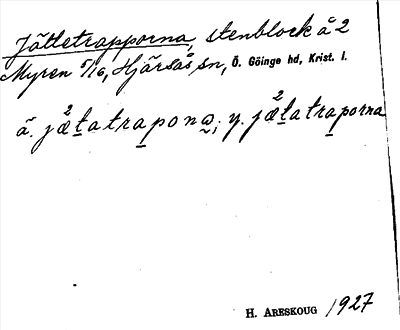 Jättetrapporna, stenblock å 2
Myren 5/16, Hjärsås sn, Ö. Göinge hd, Krist. l.
ä. jæ²t̲atra̲pona̰; y. jæ²t̲atra̲porna
H. ARESKOUG 1927